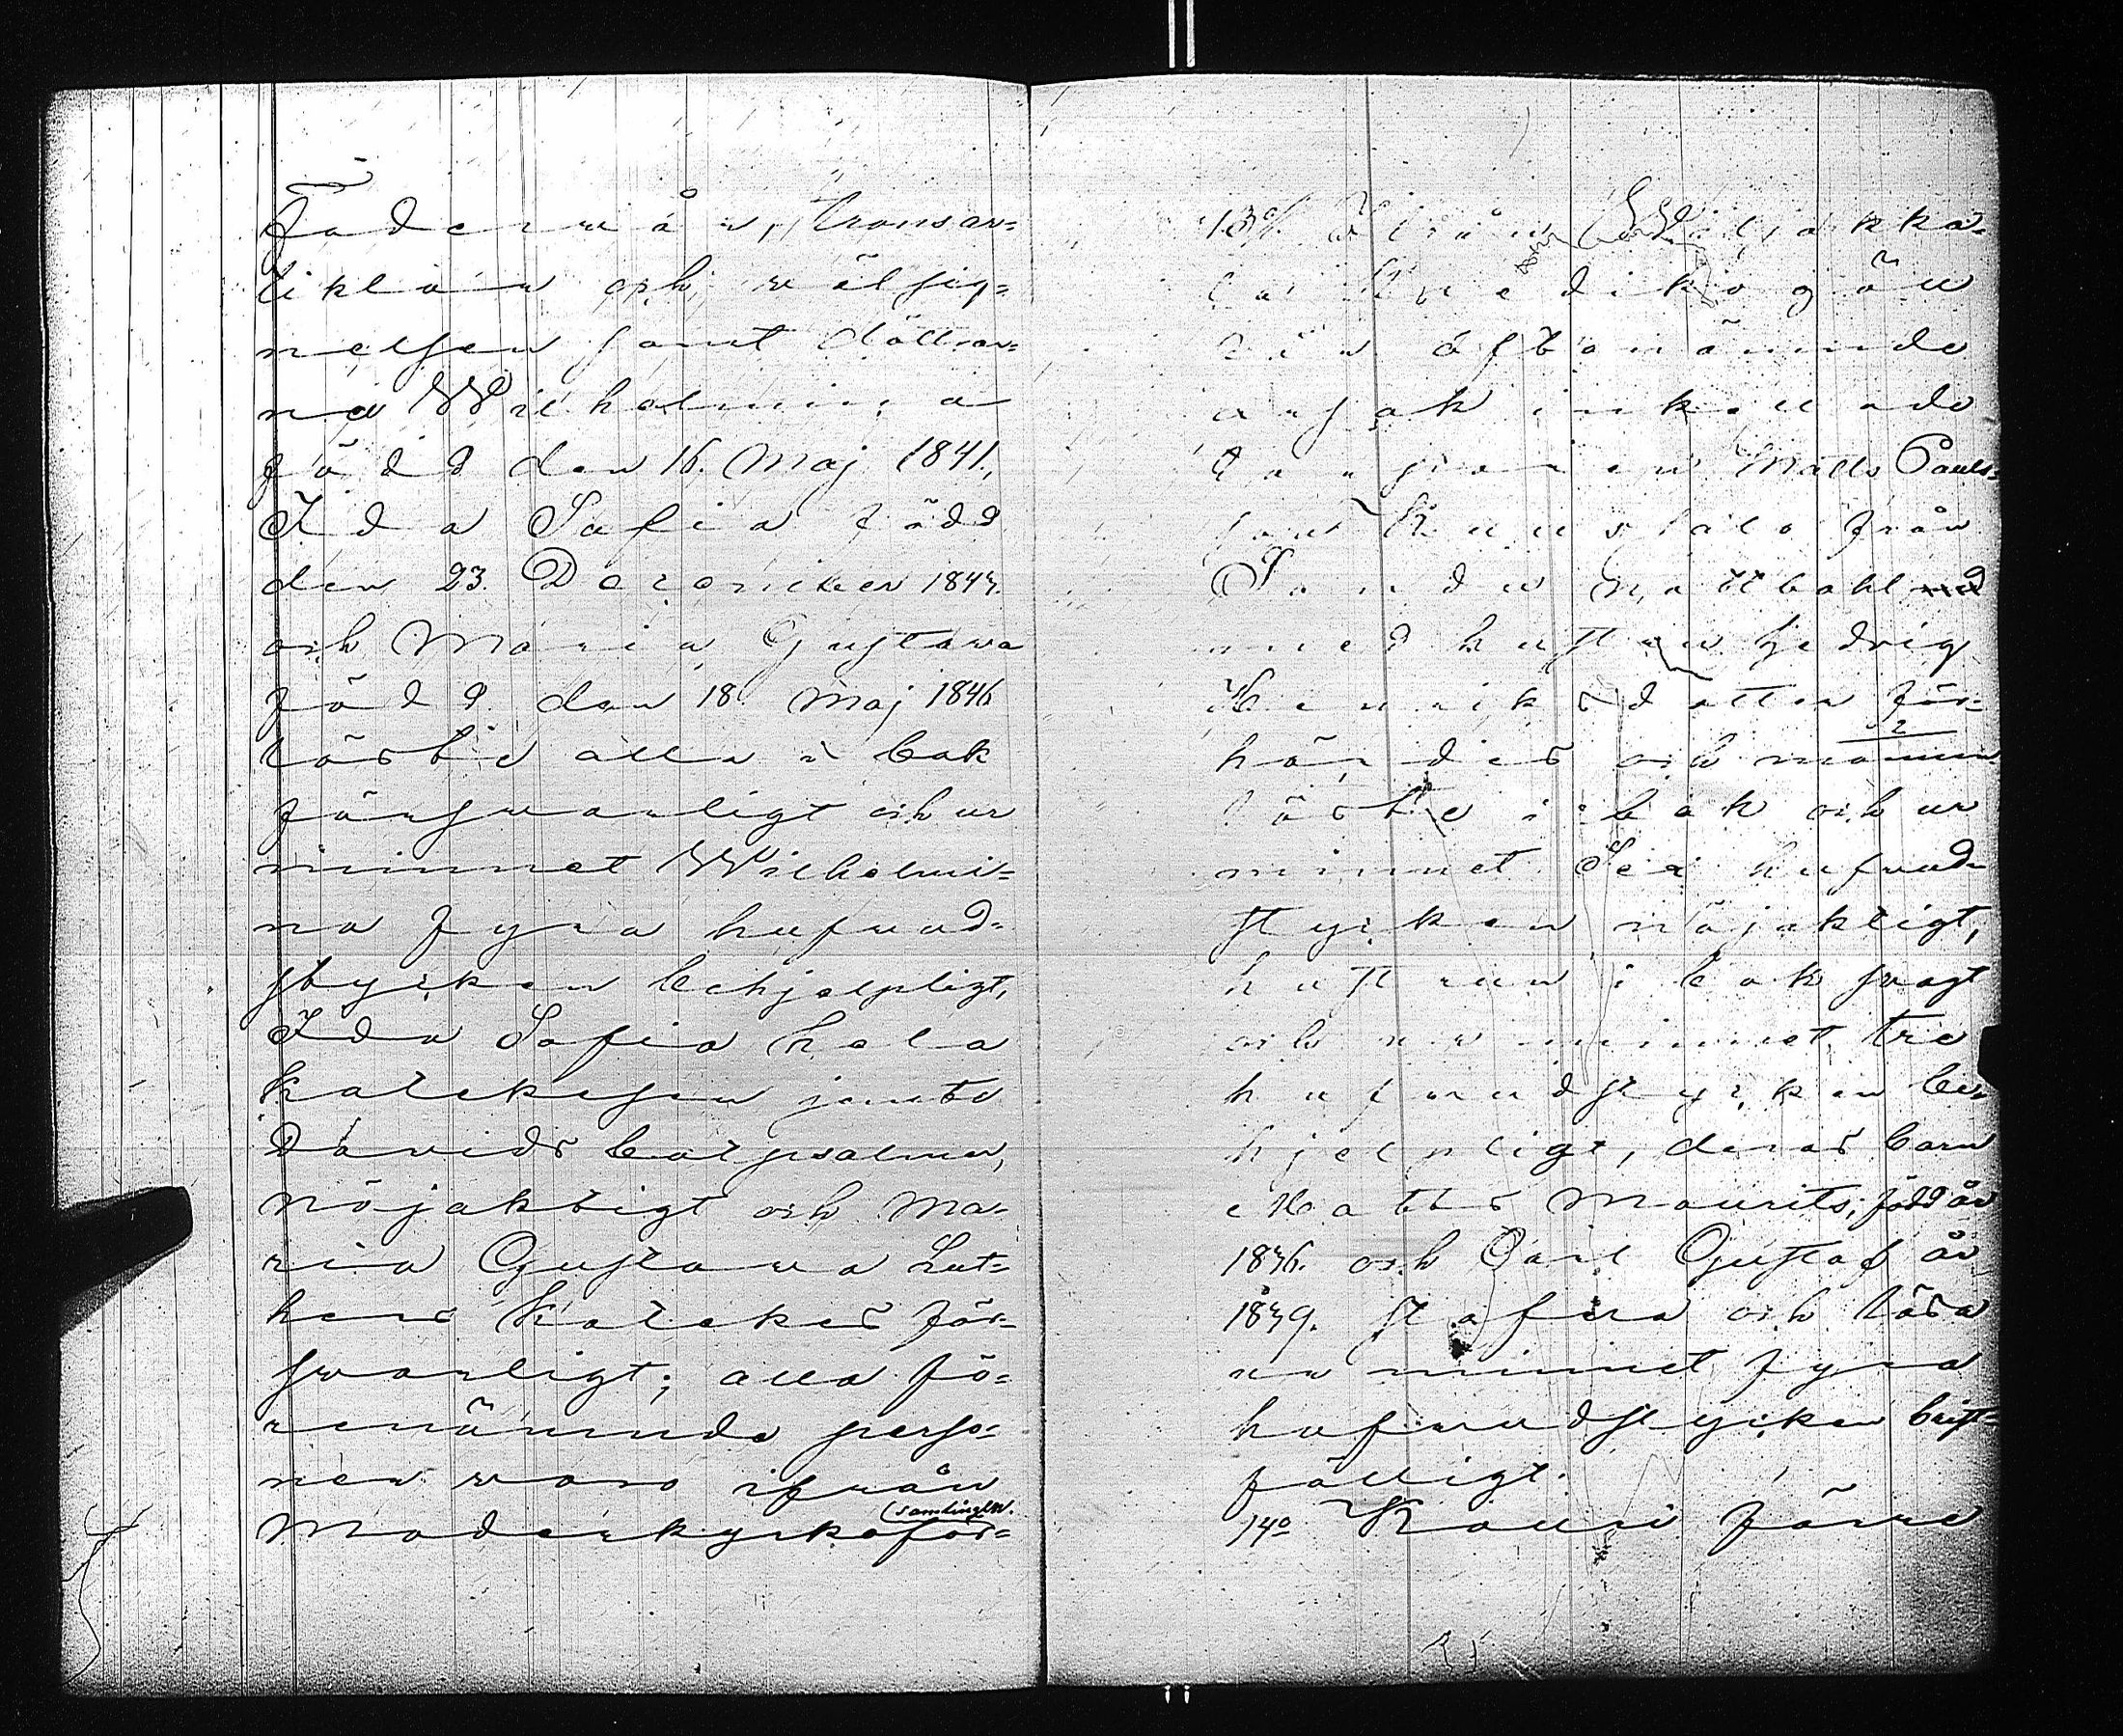 Faderwår, trosar-
tiklarn och wälsig-
nelsen samt döttrar-
na Wilhelmina
född den 16. Maj 1841,
Ida Sofia född
den 23. December 1844.
och Maria Gustawa
född den 18 Maj 1846
läste alla i bok
förswarligt och ur
minnet Wilhelmi-
na fyra hufvud-
stycken behjelpligt,
Ida Sofia hela
katekesen jemte
Davids botpsalmer,
nöjaktigt och Ma-
ria Gustava Lut-
hers katekes för-
swarligt; alla fö-
renämnde perso-
ner woro ifrån
(samlingen.
Moderkyrkoför-
13o. Ifrån
ofvannämnde
orsak inkallade
Matts Pauls-
son från
Mattbahl
med hustrun Hedvig
Henriksdotter för-
hördes och mannen
läste i bok och ur
minnet Sex hufvud-
stycken nöjaktligt,
hustrun i bok svagt
och ur minnet tre
hufvudstycken be-
hjelpligt, deras barn
Matts Maurits, född år
1836. och Carl Gustaf år
1839. stafva och läsa
ur minnet fyra
hufvudstycken brist-
fälligt.
14o Kauri Järvi